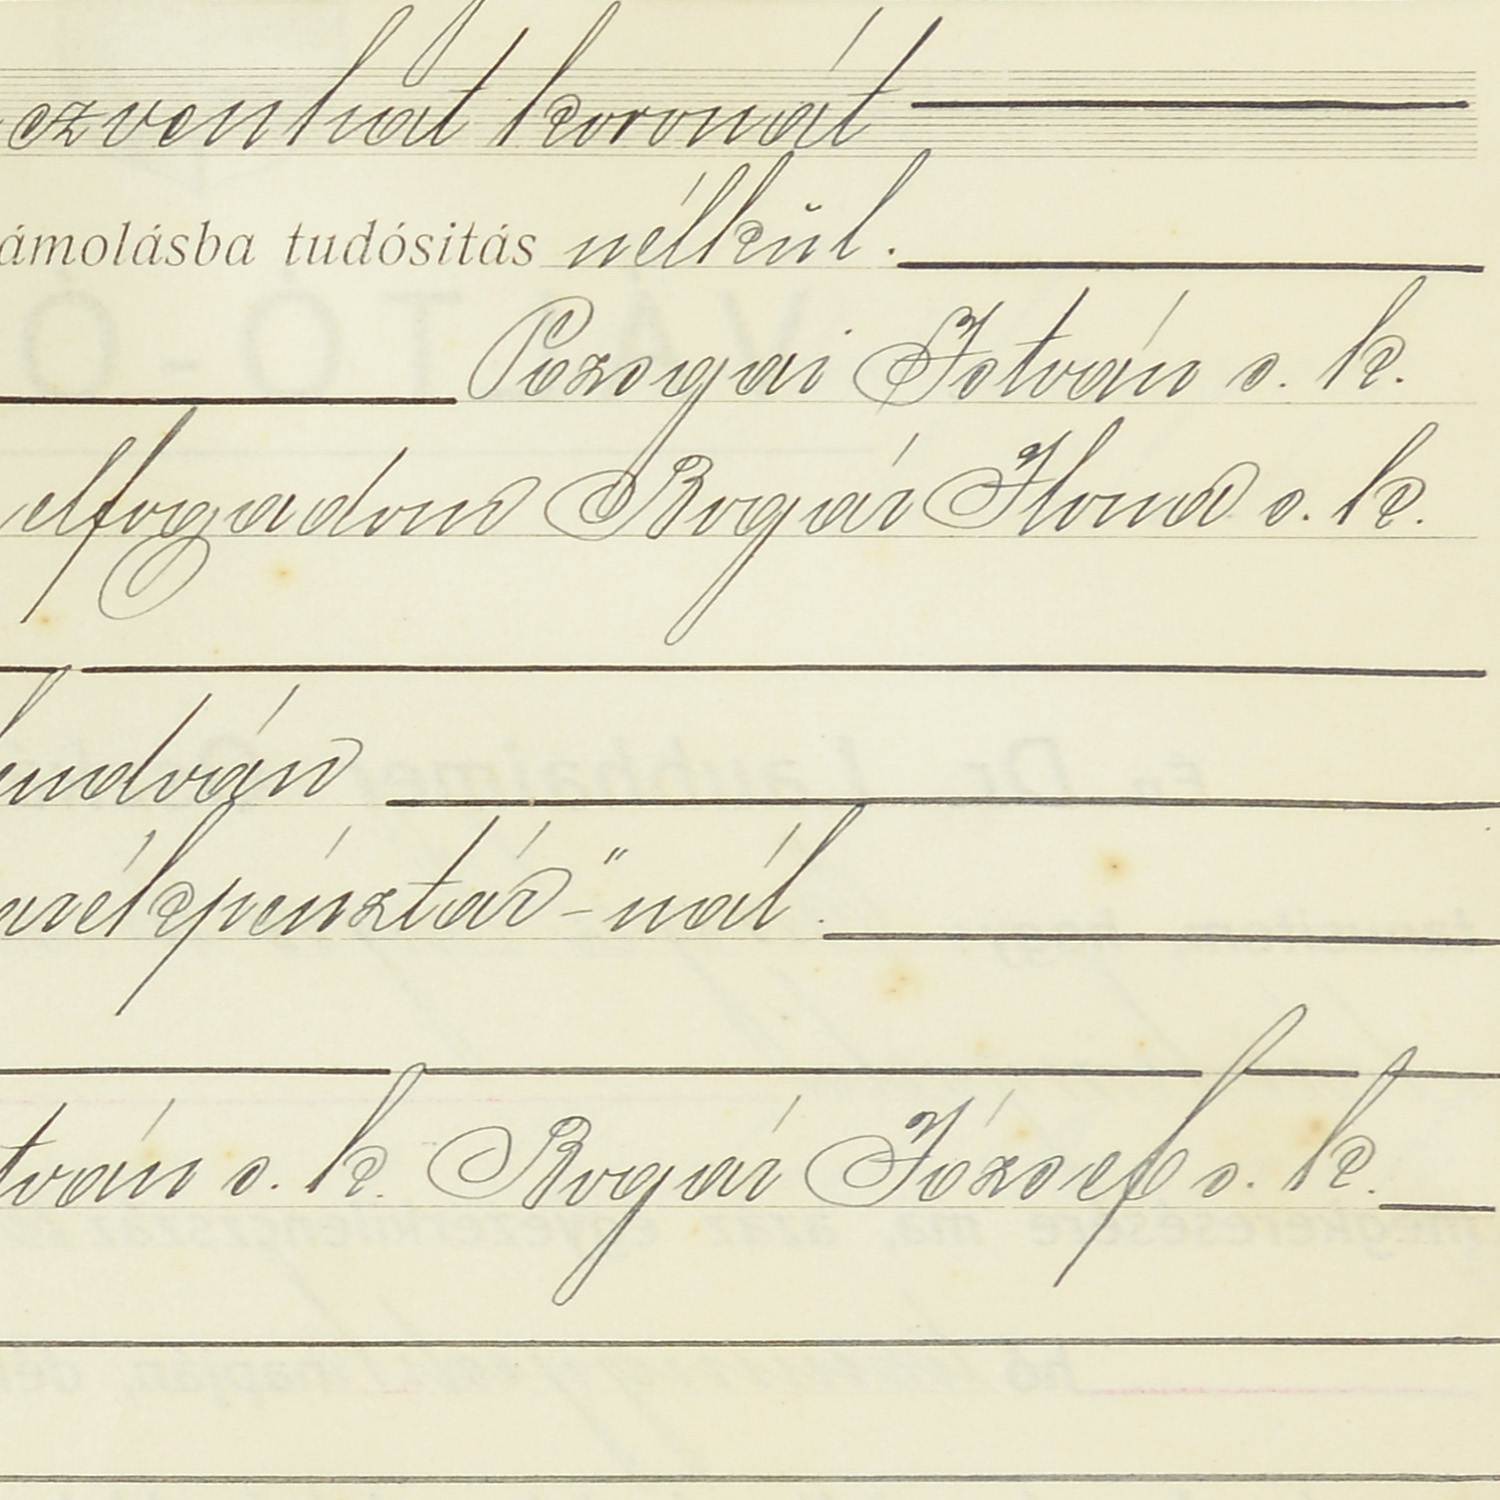 ezvenhat koronát
ámolásba tudósitás nélkül.
Pozsgai István s. k.
elfogadom Bogár Ilona s. k.
endván
arékpénztár"-nál.
tván s. k. Bogár József s. k.